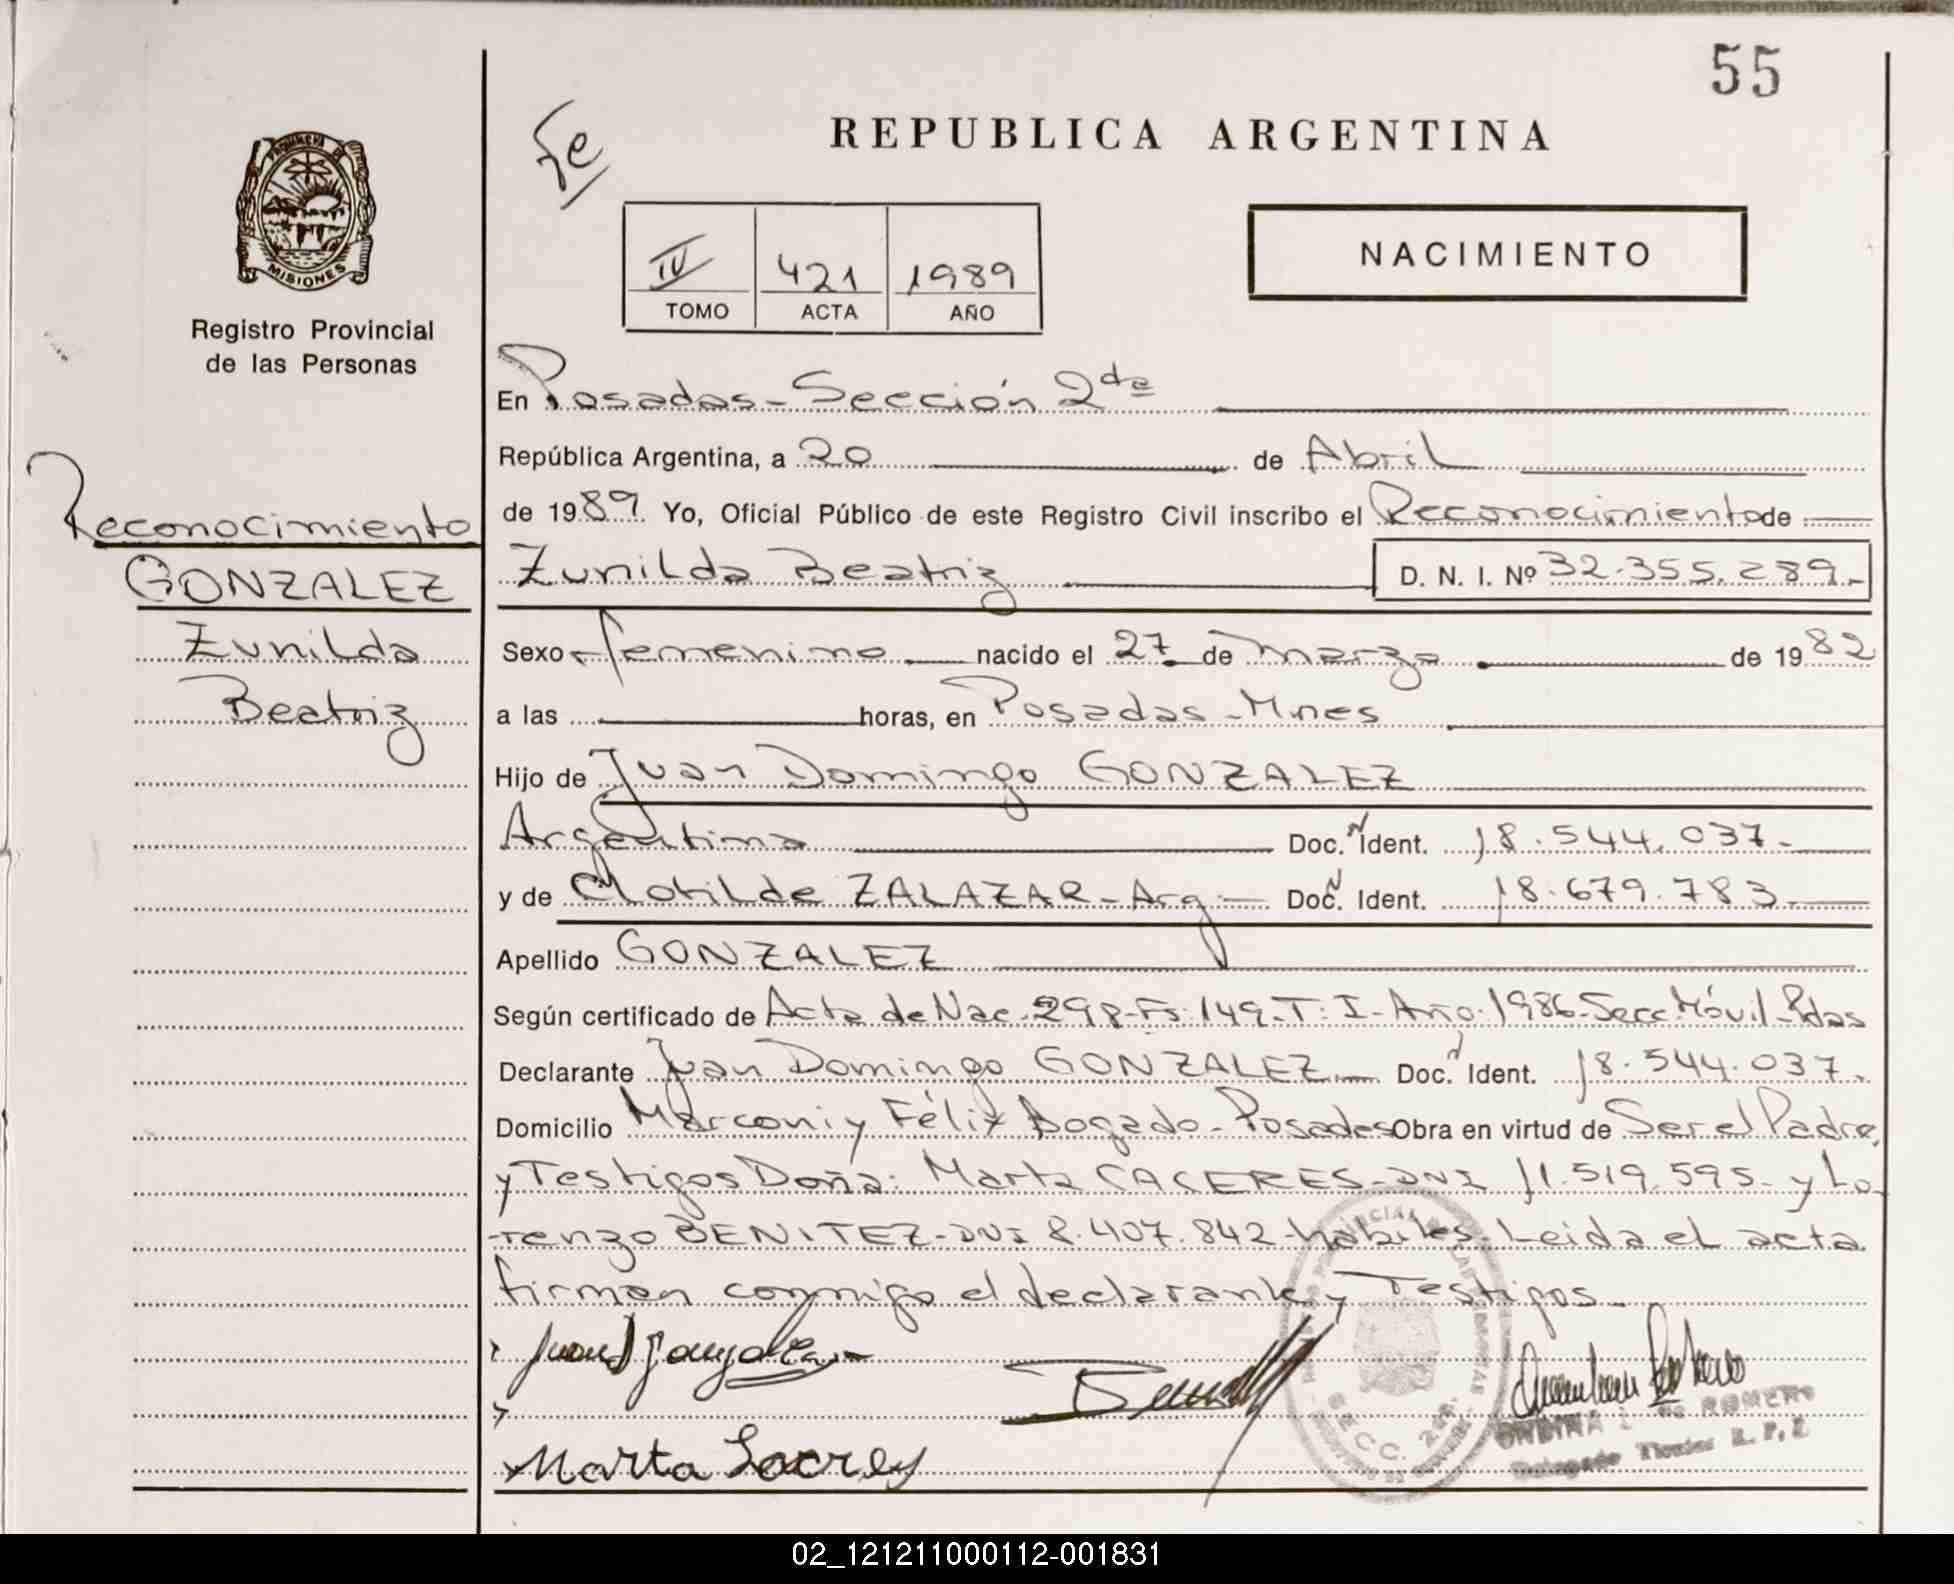 55
Fe
REPUBLICA ARGENTINA
PROVINCIA DE
MISIONES
Registro Provincial
de las Personas
IV 421 1989
TOMO ACTA AÑO
NACIMIENTO
En Posadas - Sección 2da
República Argentina, a 20 de Abril
de 1989. Yo, Oficial Público de este Registro Civil inscribo el Reconocimiento de
Zunilda Beatriz D. N. I. Nº 32.355.289.-
Reconocimiento
GONZALEZ
Zunilda
Beatriz
Sexo femenino nacido el 27 de marzo de 1982
a las horas, en Posadas - Mnes
Hijo de Juan Domingo GONZALEZ
Argentina Doc. N Ident. 18.544.037.-
y de Clotilde ZALAZAR - Arg. - Doc. N Ident. 18.679.783.-
Apellido GONZALEZ
Según certificado de Acta de Nac. 298 - Fs: 149 - T: I - Año: 1986 - Secc. Móvil - Pdas
Declarante Juan Domingo GONZALEZ.- Doc. N Ident. 18.544.037.
Domicilio Marconi y Félix Bogado - Posadas Obra en virtud de Ser el Padre,
y Testigos Doña: Marta CACERES - DNI 11.519.595 - y Lo-
-renzo BENITEZ - DNI 8.407.842 - hábiles. Leida el acta
firman conmigo el declarante y Testigos.-
Juan D Gonzalez
Marta
SECC. 2da.
ROMERO
Delegado Titular R. P. P.
02_121211000112-001831